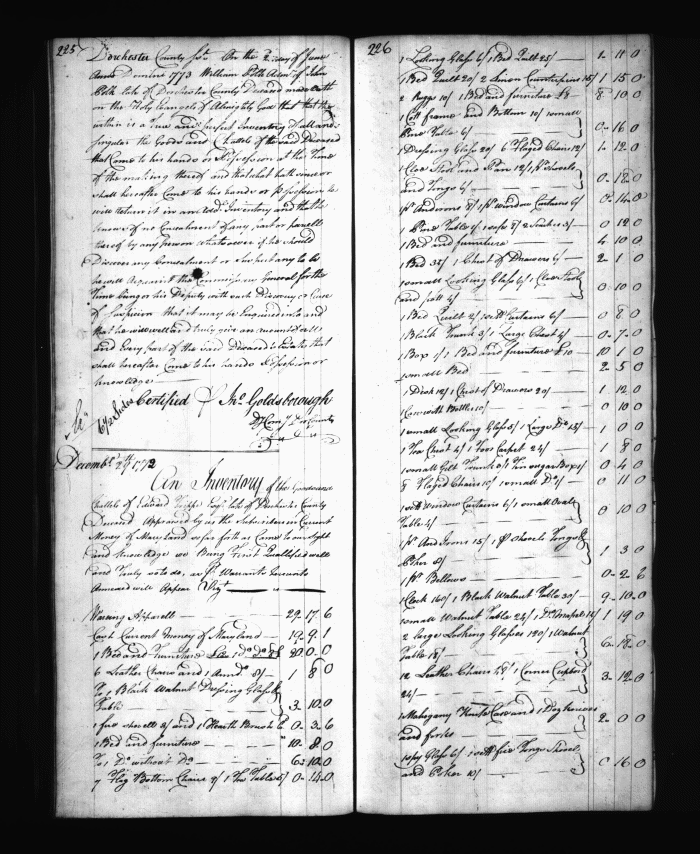 225
Dorchester County Sct. On the 2 day of June
Anno Domini 1773 William Polk Admr. of John
Polk late of Dorchester County Deceased made oath
on the Holy Evangels of Almighty God that the
within is a True and perfect Inventory of all and
singular the Goods and Chattels of the said Deceased
that Came to his hands or Possession at the Time
of the making thereof and that what hath since or
shall hereafter Come to his hands or possession he
will Return it in an Inventory and that he
knows of no Concealment of any part or parcell
thereof by any Person whatsoever if he should
Discover any Concealment or Suspect any to be
he will Acquaint the Commissary General for the
Time being or his Deputy with such Discovery or Cause
of Suspicion that it may be Enquired into and
that he will well and truly give an account of all
and Every part of the said Deceased's Estate that
shall hereafter Come to his hands Possession or
knowledge
Certified Jno. Goldsborough
Dy Comy Dor County
Decembr. 29th 1772
An Inventory of the Goods and
Chattels of Edward late of Dorchester County
Deceased Appraised by us the Subscribers in Current
Money of Maryland so far forth as Came to our Sight
and knowledge we Being First Qualified well
and Truly so to do, as pr. Warrant hereunto
Annexed will Appear Vizt
Wearing Apparell 29. 17. 6
Cash Current Money of Maryland 19. 9. 1
1 Bed and Furniture 20. 0. 0
6 Leather Chairs and 1 8/ 1 8 0
To 1 Black Walnut Dressing Glass &
Table 3. 10. 0
1 fire shovell 2/ and 1 Hearth Brush 0. 3. 6
1 Bed and furniture 10. 8. 0
To 1 Do. without Do. 6. 10. 0
7 Flag Bottom Chairs 9/ 1 Tea Table 5/ 0. 14. 0
226
1 Looking Glass 6/ 1 Bed Quilt 25/ 1. 11 0
1 Bed Quilt 20/ 2 Linen Counterpins 15/ 1 15 0
2 Ruggs 10/ 1 Bed and furniture £8 8 10. 0
1 Cott frame and Bottom 10/ 1 small
Pine Table 6/ 0. 16. 0
1 Dressing Glass 20/ 6 Flaged Chairs 12/ 1. 12. 0
1 Close Stool and Pan 12/ 1 Pr. Shovels
and Tongs 6/ 0. 18. 0
1 Pr. Andirons 8/ 1 Pr. Window Curtains 6/ 0. 14. 0
0 12 0
1 Bed and furniture 4 10 0
1 Bed 35/ 1 Chest of Drawers 6/ 2. 1 0
1 small Looking Glass 6/ 1 Close Stool
and pott 4/ 0. 10. 0
1 Bed Quilt 2/ Curtains 6/ 0 8 0
1 Black Trunk 3/ 1 Large Chest 4/ 0. 7. 0
1 Box 1/ 1 Bed and furniture £10 10 1 0
1 small Bed 2. 5 0
1 Desk 12/ 1 Chest of Drawers 20/ 1 12 0
Bottles 10/ 0 10 0
1 small Looking Glass 5/ 1 Large Do. 15/ 1 0 0
1 Tea Chest 4/ 1 Carpet 24/ 1 8 0
1 small Gilt Trunk 3/ 1 Sugar Box 1/ 0. 4. 0
8 Flaged Chairs 10/ 1 small Do. 1/ 0 11 0
Window Curtains 6/ 1 small Oval
Table 4/ 0 10 0
1 Pr. And Irons 15/ 1 Pr. shovels Tongs &
Poker 8/ 1 3 0
1 Pr. Bellows 0. 2. 6
1 Clock 160/ 1 Black Walnut Table 30/ 9. 10. 0
1 small Walnut Table 24/ 1 Do. 15/ 1 19 0
2 large Looking Glasses 120/ 1 Walnut
Table 18/ 6. 18. 0
12 Leather Chairs 48/ 1 Corner Cupboard
24/ 3. 12. 0
1 Mahogany Knife Case and 1 Doz knives
and forks 2. 0 0
Glass 6/ 1 fire Tongs Shovel
and Poker 10/ 0 16 0